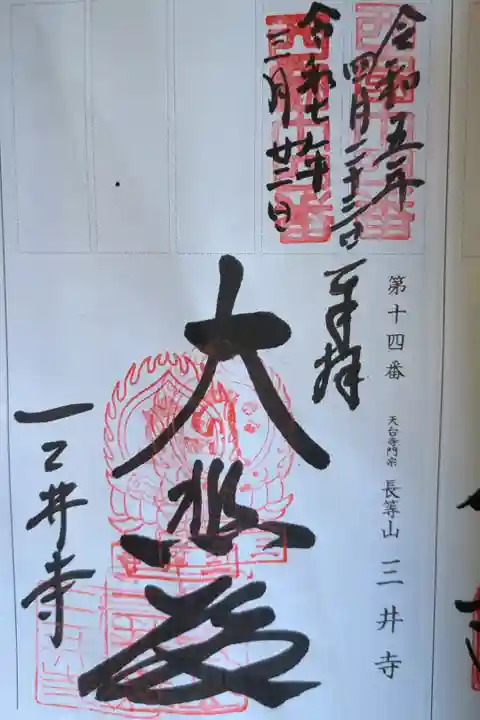 第十四番 天台寺門宗 長等山 三井寺
令和五年
四月二十三日 奉拝
令和七年
三月廿三日
大悲殿
三井寺